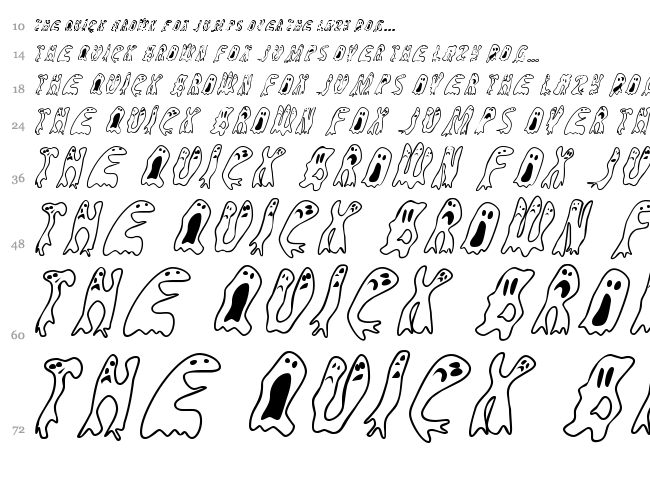 10 THE QUICK BROWN FOX JUMPS OVER THE LAZY DOG...
14 THE QUICK BROWN FOX JUMPS OVER THE LAZY DOG...
18 THE QUICK BROWN FOX JUMPS OVER THE LAZY DOG
24 THE QUICK BROWN FOX JUMPS OVER TH
36 THE QUICK BROWN FOX JU
48 THE QUICK BROWN F
60 THE QUICK BRO
72 THE QUICK B